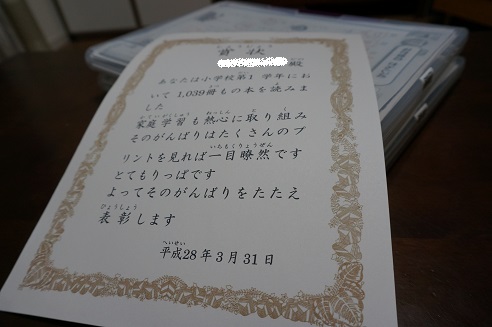 賞状
殿
あなたは小学校第1学年にお
いて1,039冊もの本を読みま
した
家庭学習も熱心に取り組み
そのがんばりはたくさんのプ
リントを見れば一目瞭然です
とてもりっぱです
よってそのがんばりをたたえ
表彰します
平成28年3月31日